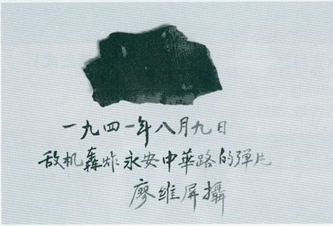 一九四一年八月九日
敌机轰炸永安中華路的弹片
廖维屏攝